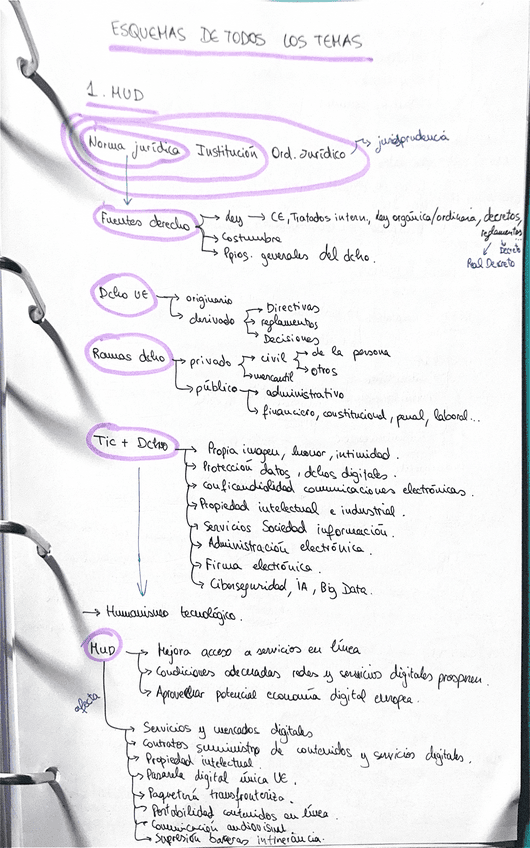 ESQUEMAS DE TODOS LOS TEMAS
1. MUD
Norma jurídica Institución Ord. Jurídico → jurisprudencia
Fuentes derecho → Ley → CE, Tratados intern., Ley orgánica/ordinaria, decretos, reglamentos...
Decreto
Real Decreto
→ Costumbre
→ Ppios. generales del dcho.
Dcho UE → originario
→ derivado → Directivas
→ reglamentos
→ Decisiones
Ramas dcho → privado → civil → de la persona
→ otros
→ mercantil
→ público → administrativo
→ financiero, constitucional, penal, laboral...
Tic + Dcho → Propia imagen, honor, intimidad.
→ Protección datos, dchos digitales.
→ Confidencialidad comunicaciones electrónicas.
→ Propiedad intelectual e industrial.
→ Servicios Sociedad información.
→ Administración electrónica.
→ Firma electrónica.
→ Ciberseguridad, IA, Big Data.
→ Humanismo tecnológico.
MUD → Mejora acceso a servicios en línea
→ Condiciones adecuadas redes y servicios digitales prosperen.
→ Aprovechar potencial economía digital europea.
afecta
→ Servicios y mercados digitales
→ Contratos suministro de contenidos y servicios digitales.
→ Propiedad intelectual.
→ Pasarela digital única UE.
→ Paquetería transfronteriza.
→ Portabilidad contenidos en línea.
→ Comunicación audiovisual
→ Supresión barreras itinerancia.